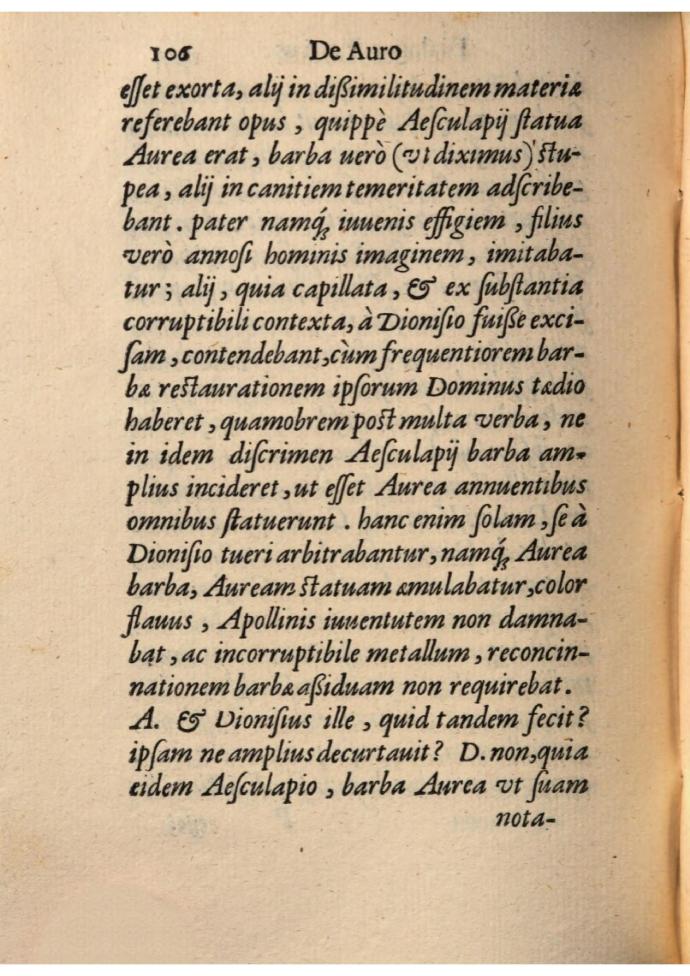 106 De Auro
eſſet exorta, alij in dißimilitudinem materiæ
referebant opus, quippè Aeſculapij ſtatua
Aurea erat, barba uerò (vt diximus) ſtu-
pea, alij in canitiem temeritatem adſcribe-
bant. pater namq́ꝫ iuuenis effigiem, filius
verò annoſi hominis imaginem, imitaba-
tur; alij, quia capillata, & ex ſubſtantia
corruptibili contexta, à Dioniſio fuiße exci-
ſam, contendebant, cùm frequentiorem bar-
bæ reſtaurationem ipſorum Dominus tædio
haberet, quamobrem poſt multa verba, ne
in idem diſcrimen Aeſculapij barba am-
plius incideret, ut eſſet Aurea annuentibus
omnibus ſtatuerunt. hanc enim ſolam, ſe à
Dioniſio tueri arbitrabantur, namq́ꝫ Aurea
barba, Auream ſtatuam æmulabatur, color
flauus, Apollinis iuuentutem non damna-
bat, ac incorruptibile metallum, reconcin-
nationem barbæ aßiduam non requirebat.
A. & Dioniſius ille, quid tandem fecit?
ipſam ne amplius decurtauit? D. non, quia
eidem Aeſculapio, barba Aurea vt ſuam
nota-